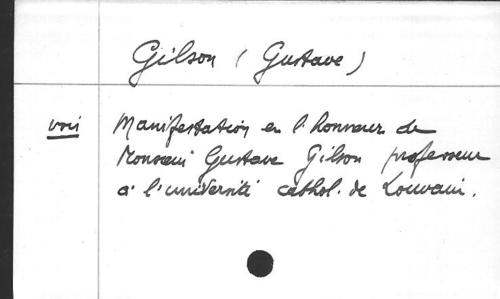 Gilson (Gustave)
voir Manifestation en l'honneur de
Monsieur Gustave Gilson professeur
à l'université cathol. de Louvain.